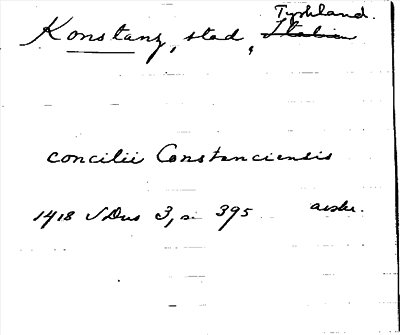 Konstanz, stad, Tyskland.
concilii Constanciensis
1418 SDns 3, s. 395 avskr.